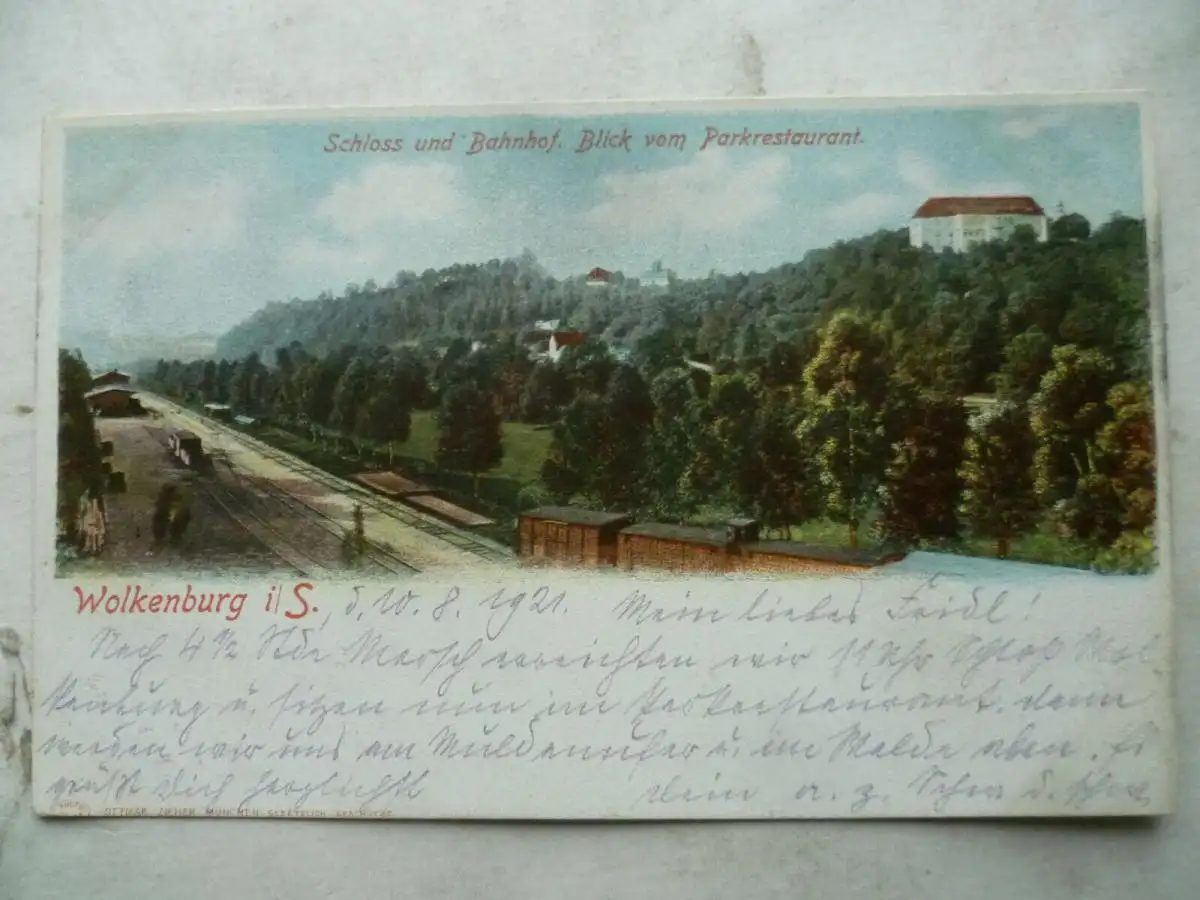 Schloss und Bahnhof. Blick vom Parkrestaurant.
Wolkenburg i/S., d. 10. 8. 1921. Mein liebes Friedl!
Nach 4 ½ Stde Marsch erreichten wir 11 Uhr Schloß Wol
kenburg u. sitzen nun im Parkrestaurant, dann
werden wir uns am Muldenufer u. im Walde
grüßt Dich herzlichst Dein
OTTMAR ZIEHER, MÜNCHEN. GESETZLICH GESCHÜTZT.